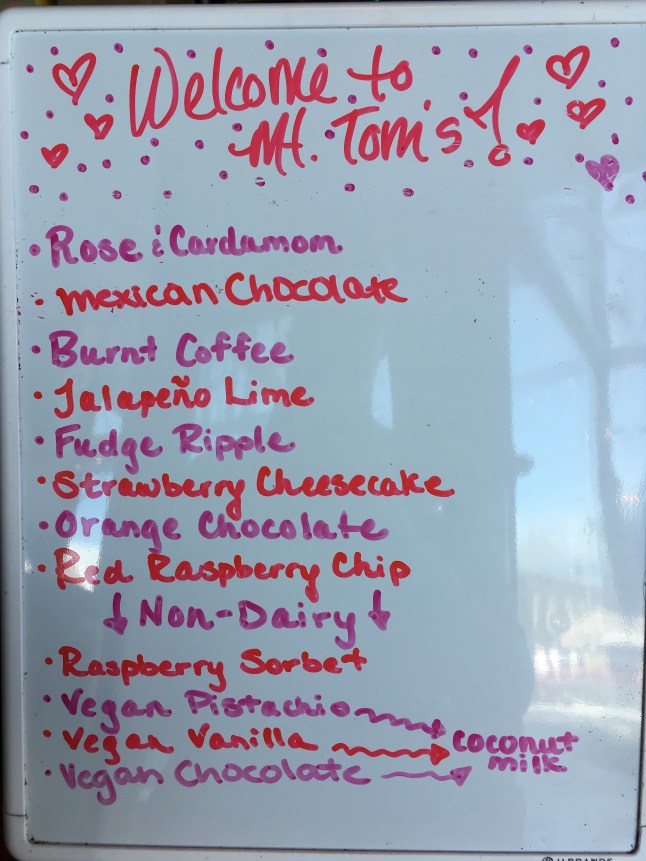 Welcome to
Mt. Tom's!
• Rose & Cardamom
• Mexican Chocolate
• Burnt Coffee
• Jalapeño Lime
• Fudge Ripple
• Strawberry Cheesecake
• Orange Chocolate
• Red Raspberry Chip
↓ Non-Dairy ↓
• Raspberry Sorbet
• Vegan Pistachio
• Vegan Vanilla
• Vegan Chocolate
coconut
milk